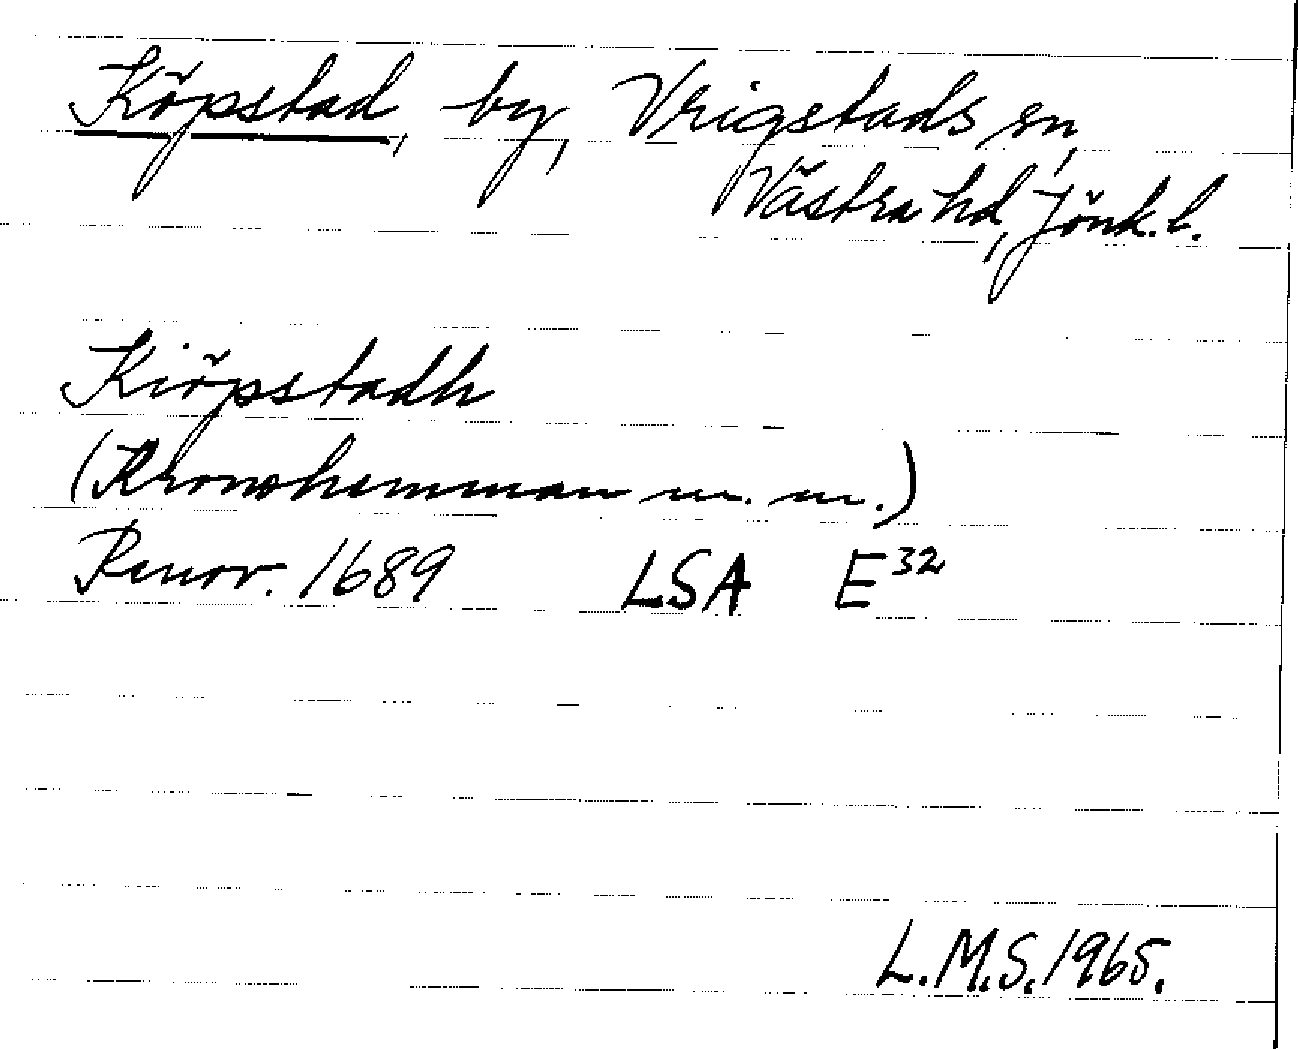 Köpstad, by, Vrigstads sn,
Västra hd, Jönk. l.
Kiöpstadh
(Kronohemman m. m.)
Renov. 1689 LSA E³²
L.M.S. 1965.